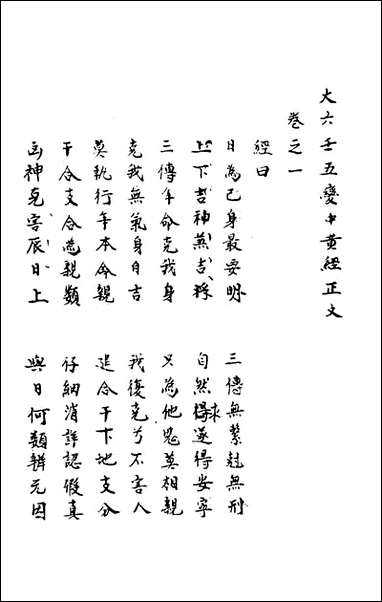 大六壬五變中黃經正文
卷之一
經曰
日為己身最要明 三傳無繫尅無刑
上下吉神兼吉將 自然求得遂得安寧
三傳年命克我身 只為他鬼莫相親
克我無氣身自吉 我復克兮不害人
莫執行年本命親 追合干下地支分
干合支合為親類 仔細消詳認假真
凶神克害辰日上 與日何類辨元因